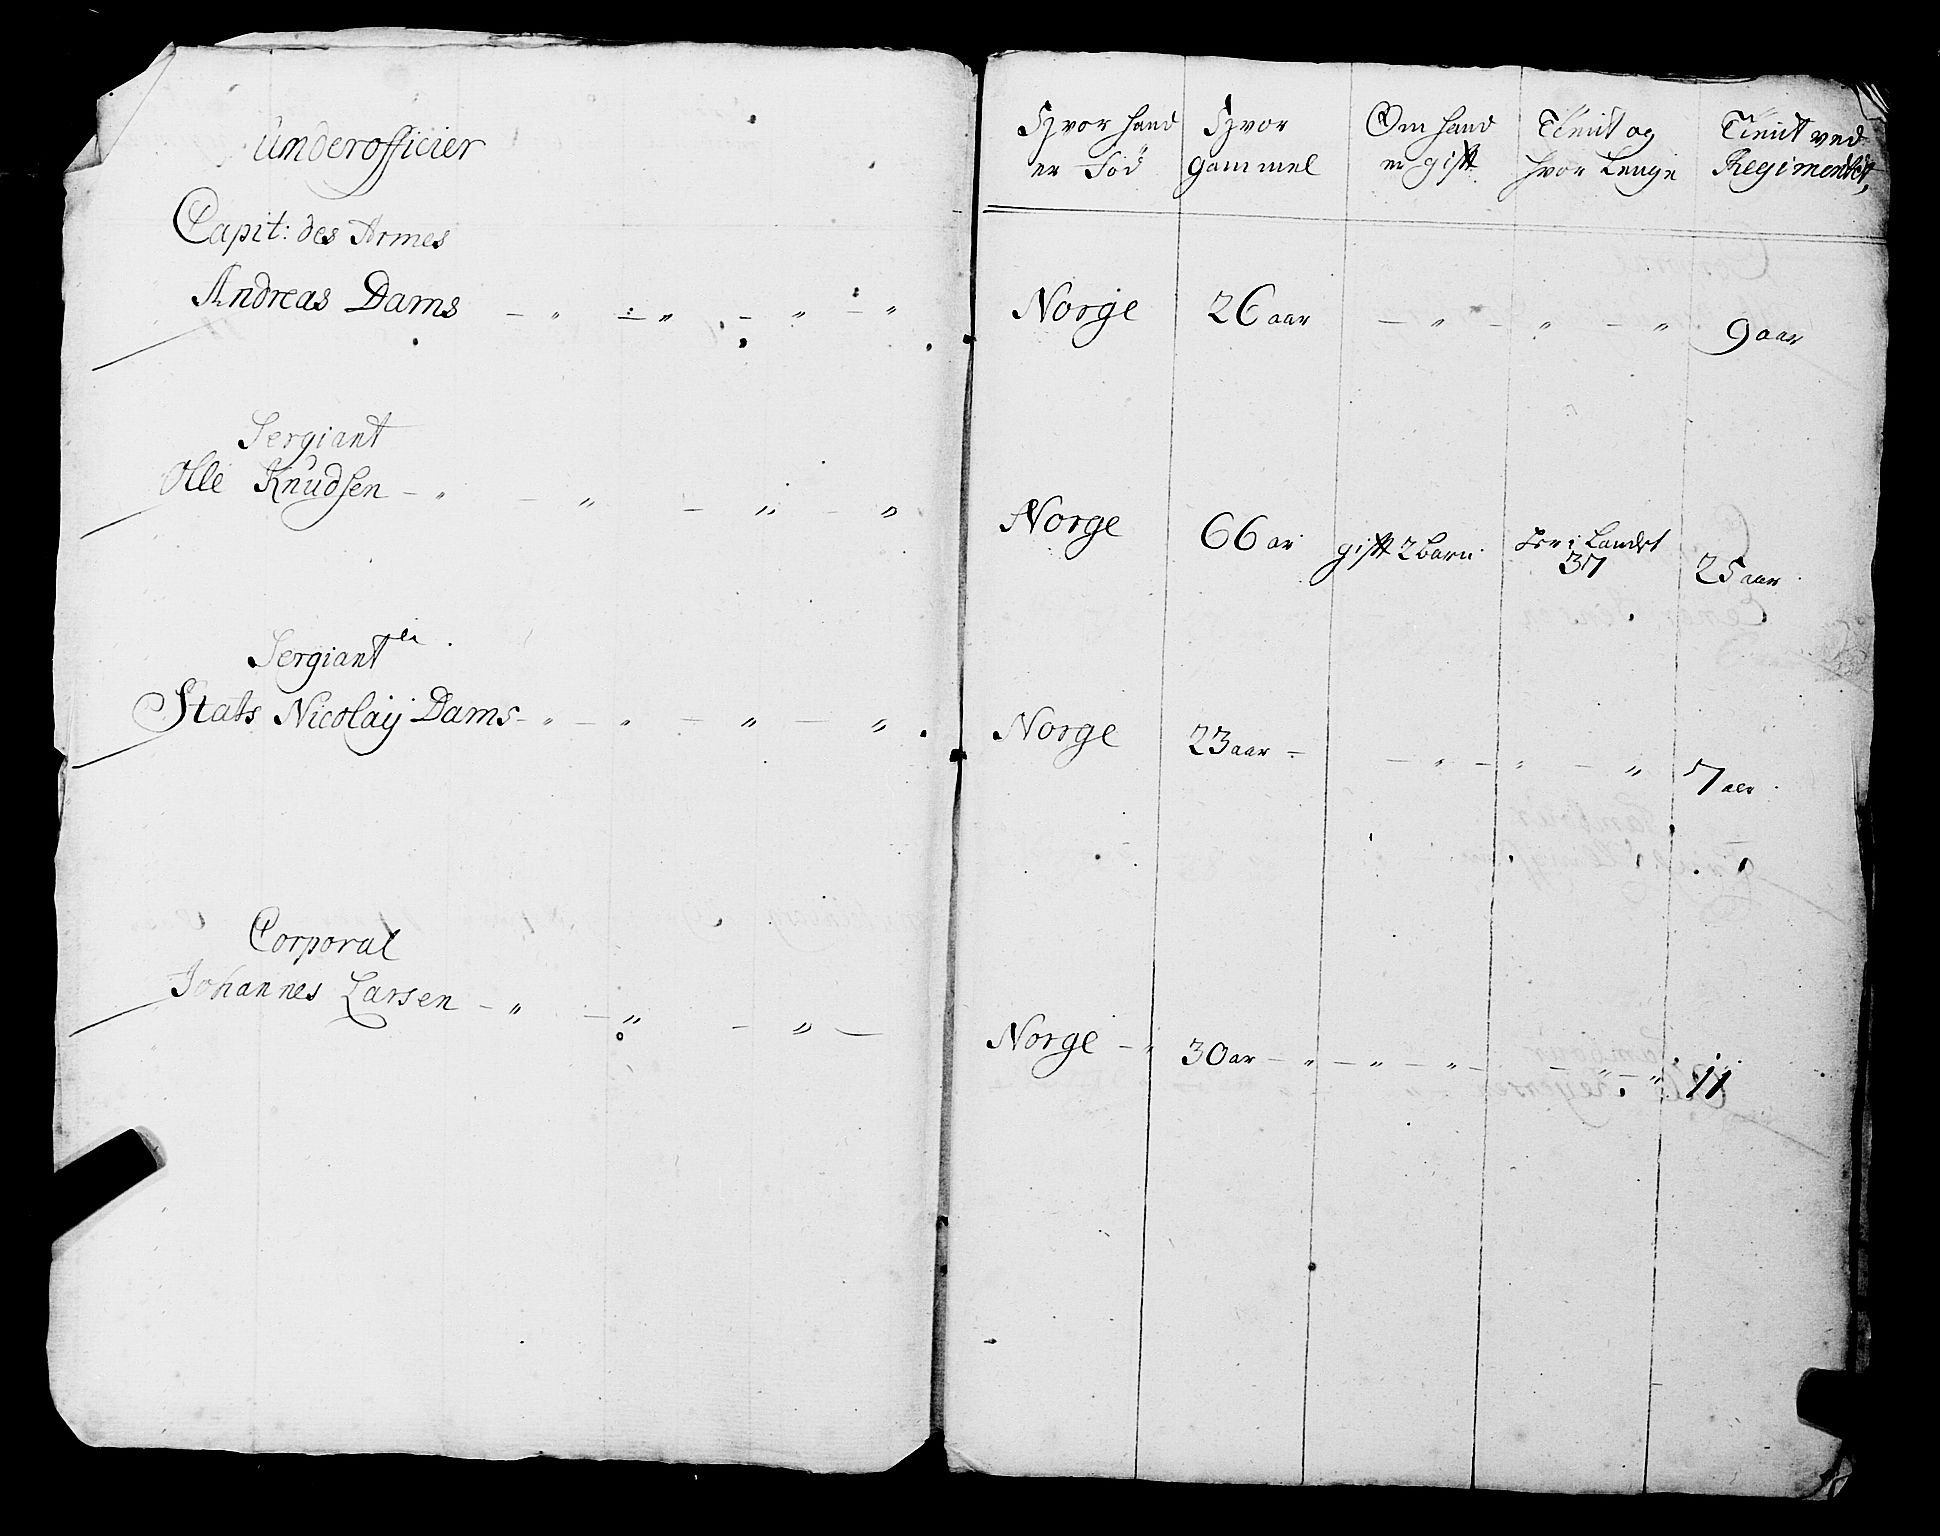 Underofficier
Capit: des Armes
Andreas Dams
Sergiant
Olle Knudsen
Sergiant
Stats Nicolaÿ Dams
Corporal
Johannes Larsen
Hvor hand er Föd
Hvor gammel
Om hand er gift
Tient og hvor Lenge
Tient ved Regimentet,
Norge 26 aar 9 aar
Norge 66 ar gift 2 barn her i Landet 37 25 aar
Norge 23 aar 7 aar
Norge 30 ar 11